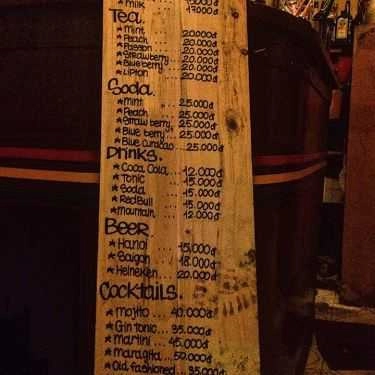 * milk 17.000đ
Tea.
* Mint 20.000đ
* Peach 20.000đ
* Passion 20.000đ
* Strawberry 20.000đ
* Blueberry 20.000đ
* Lipton 20.000đ
Soda.
* Mint 25.000đ
* Peach 25.000đ
* Strawberry 25.000đ
* Blue berry 25.000đ
* Blue curacao 25.000đ
Drinks.
* Coca Cola 12.000đ
* Tonic 15.000đ
* Soda 15.000đ
* Red Bull 15.000đ
* Mountain 12.000đ
Beer.
* Hanoi 15.000đ
* Saigon 18.000đ
* Heineken 20.000đ
Cocktails.
* mojito 40.000đ
* Gin tonic 35.000đ
* Martini 45.000đ
* Maragita 50.000đ
* Old fashioned 35.000đ